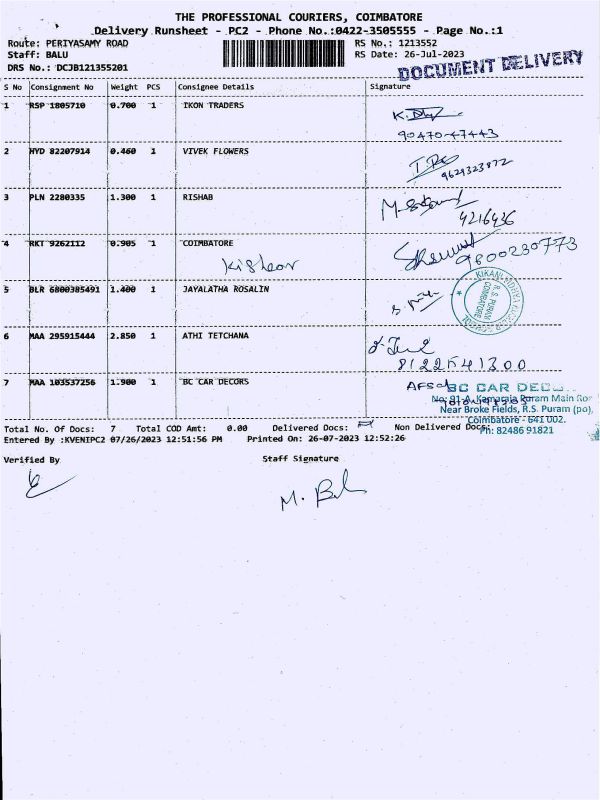 THE PROFESSIONAL COURIERS, COIMBATORE
Delivery Runsheet - PC2 - Phone No.:0422-3505555 - Page No.:1
Route: PERIYASAMY ROAD RS No.: 1213552
Staff: BALU RS Date: 26-Jul-2023
DRS No.: DCJB121355201 DOCUMENT DELIVERY
S No Consignment No Weight PCS Consignee Details Signature
1 RSP 1805710 0.700 1 IKON TRADERS
90470-47443
2 HYD 82207914 0.460 1 VIVEK FLOWERS
9629323872
3 PLN 2280335 1.300 1 RISHAB
4216436
4 RKT 9262112 0.905 1 COIMBATORE
Kishoor 9800230773
5 BLR 6800385491 1.400 1 JAYALATHA ROSALIN
R.S. PURAM COIMBATORE
6 MAA 295915444 2.850 1 ATHI TETCHANA
8122541300
7 MAA 103537256 1.900 1 BC CAR DECORS
BC CAR DECORS
No: 91-A, Kamaraja Puram Main Ror
Near Broke Fields, R.S. Puram (po),
Coimbatore - 641 002.
Ph: 82486 91821
Total No. Of Docs: 7 Total COD Amt: 0.00 Delivered Docs: Non Delivered Docs:
Entered By :KVENIPC2 07/26/2023 12:51:56 PM Printed On: 26-07-2023 12:52:26
Verified By Staff Signature